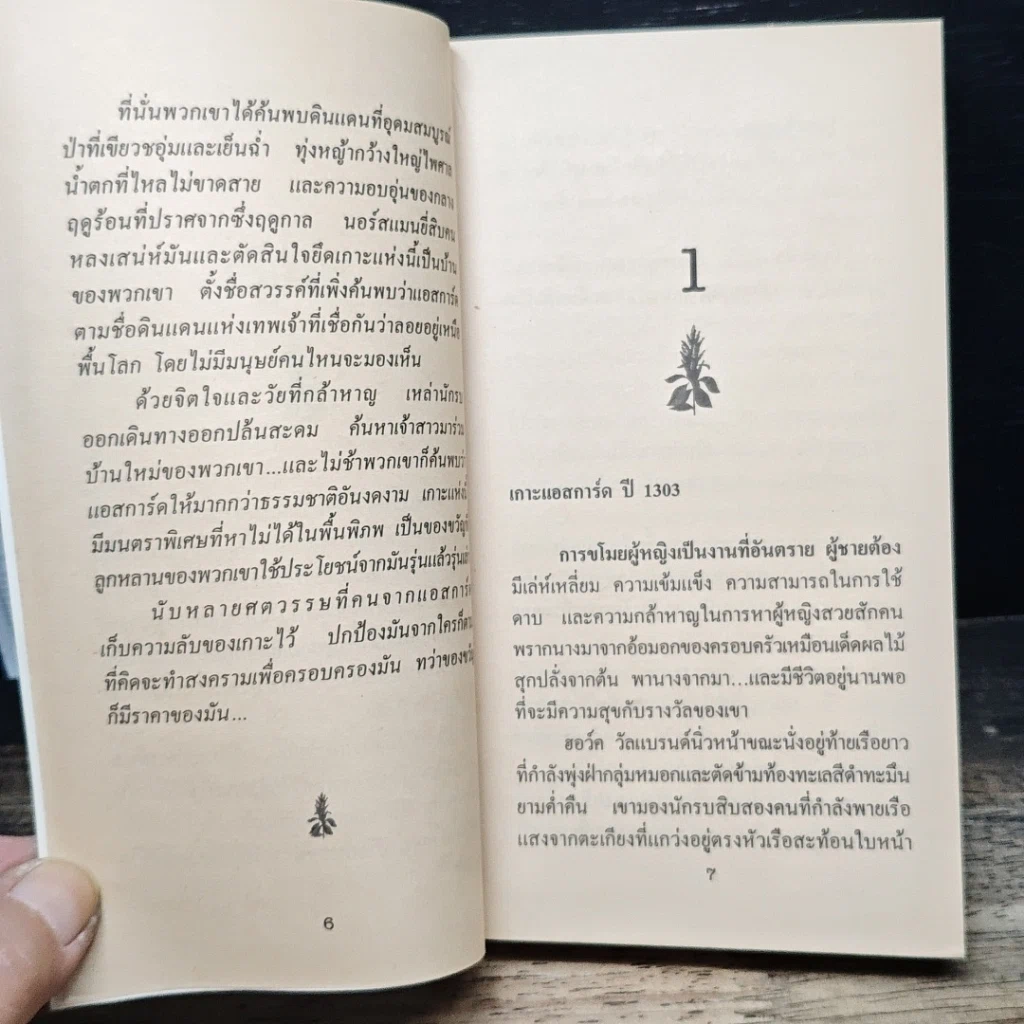 ที่นั่นพวกเขาได้ค้นพบดินแดนที่อุดมสมบูรณ์
ป่าที่เขียวชอุ่มและเย็นฉ่ำ ทุ่งหญ้ากว้างใหญ่ไพศาล
น้ำตกที่ไหลไม่ขาดสาย และความอบอุ่นของกลาง
ฤดูร้อนที่ปราศจากซึ่งฤดูกาล นอร์สแมนยี่สิบคน
หลงเสน่ห์มันและตัดสินใจยึดเกาะแห่งนี้เป็นบ้าน
ของพวกเขา ตั้งชื่อสวรรค์ที่เพิ่งค้นพบว่าแอสการ์ด
ตามชื่อดินแดนแห่งเทพเจ้าที่เชื่อกันว่าลอยอยู่เหนือ
พื้นโลก โดยไม่มีมนุษย์คนไหนจะมองเห็น
ด้วยจิตใจและวัยที่กล้าหาญ เหล่านักรบ
ออกเดินทางออกปล้นสะดม ค้นหาเจ้าสาวมาร่วม
บ้านใหม่ของพวกเขา...และไม่ช้าพวกเขาก็ค้นพบว่า
แอสการ์ดให้มากกว่าธรรมชาติอันงดงาม เกาะแห่งนี้
มีมนตราพิเศษที่หาไม่ได้ในพื้นพิภพ เป็นของขวัญที่
ลูกหลานของพวกเขาใช้ประโยชน์จากมันรุ่นแล้วรุ่นเล่า
นับหลายศตวรรษที่คนจากแอสการ์ด
เก็บความลับของเกาะไว้ ปกป้องมันจากใครก็ตาม
ที่คิดจะทำสงครามเพื่อครอบครองมัน ทว่าของขวัญ
ก็มีราคาของมัน...
6
1
เกาะแอสการ์ด ปี 1303
การขโมยผู้หญิงเป็นงานที่อันตราย ผู้ชายต้อง
มีเล่ห์เหลี่ยม ความเข้มแข็ง ความสามารถในการใช้
ดาบ และความกล้าหาญในการหาผู้หญิงสวยสักคน
พรากนางมาจากอ้อมอกของครอบครัวเหมือนเด็ดผลไม้
สุกปลั่งจากต้น พานางจากมา...และมีชีวิตอยู่นานพอ
ที่จะมีความสุขกับรางวัลของเขา
ฮอว์ค วัลแบรนด์นิ่วหน้าขณะนั่งอยู่ท้ายเรือยาว
ที่กำลังพุ่งฝ่ากลุ่มหมอกและตัดข้ามท้องทะเลสีดำทะมึน
ยามค่ำคืน เขามองนักรบสิบสองคนที่กำลังพายเรือ
แสงจากตะเกียงที่แกว่งอยู่ตรงหัวเรือสะท้อนใบหน้า
7